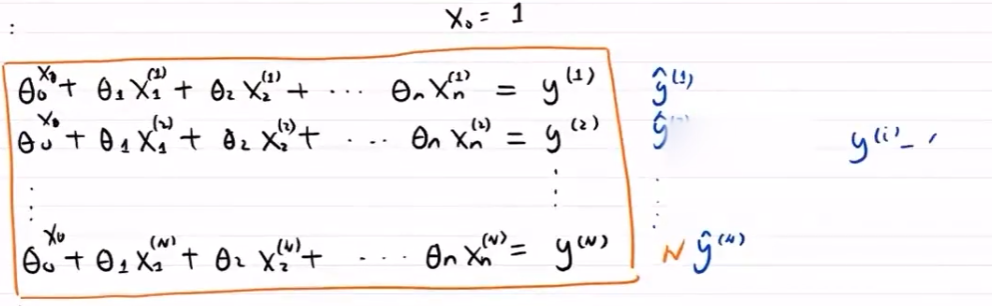 x₀ = 1
:
θ₀x₀ + θ₁x₁⁽¹⁾ + θ₂x₂⁽¹⁾ + ⋯ θₙxₙ⁽¹⁾ = y⁽¹⁾ ŷ⁽¹⁾
θ₀x₀ + θ₁x₁⁽²⁾ + θ₂x₂⁽²⁾ + ⋯ θₙxₙ⁽²⁾ = y⁽²⁾ ŷ y⁽ⁱ⁾ −
⋮ ⋮ ⋮
θ₀x₀ + θ₁x₁⁽ᴺ⁾ + θ₂x₂⁽ᴺ⁾ + ⋯ θₙxₙ⁽ᴺ⁾ = y⁽ᴺ⁾ N ŷ⁽ᴺ⁾